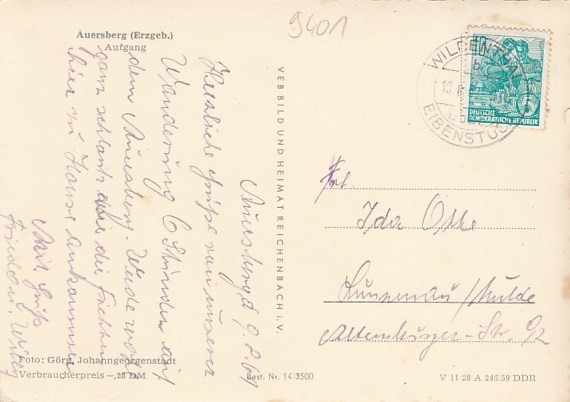 9401
Auersberg (Erzgeb.)
Aufgang
Auersberg, d. 9.8.61
Herzliche Grüße von unserer
Wanderung 6 Stunden auf
dem Auersberg. Werde wohl
ganz schlank
hier zu Hause ankommen
Mit Gruß
Foto: Görg, Johanngeorgenstadt
Verbraucherpreis –,20 DM
Best. Nr. 14/3500
VEB BILD UND HEIMAT REICHENBACH i. V.
WILDENTHAL
EIBENSTOCK
10
DEUTSCHE
DEMOKRATISCHE REPUBLIK
Frl.
Ida Otto
Lunzenau/Mulde
Altenburger-Str.
V 11 28 A 246/59 DDR